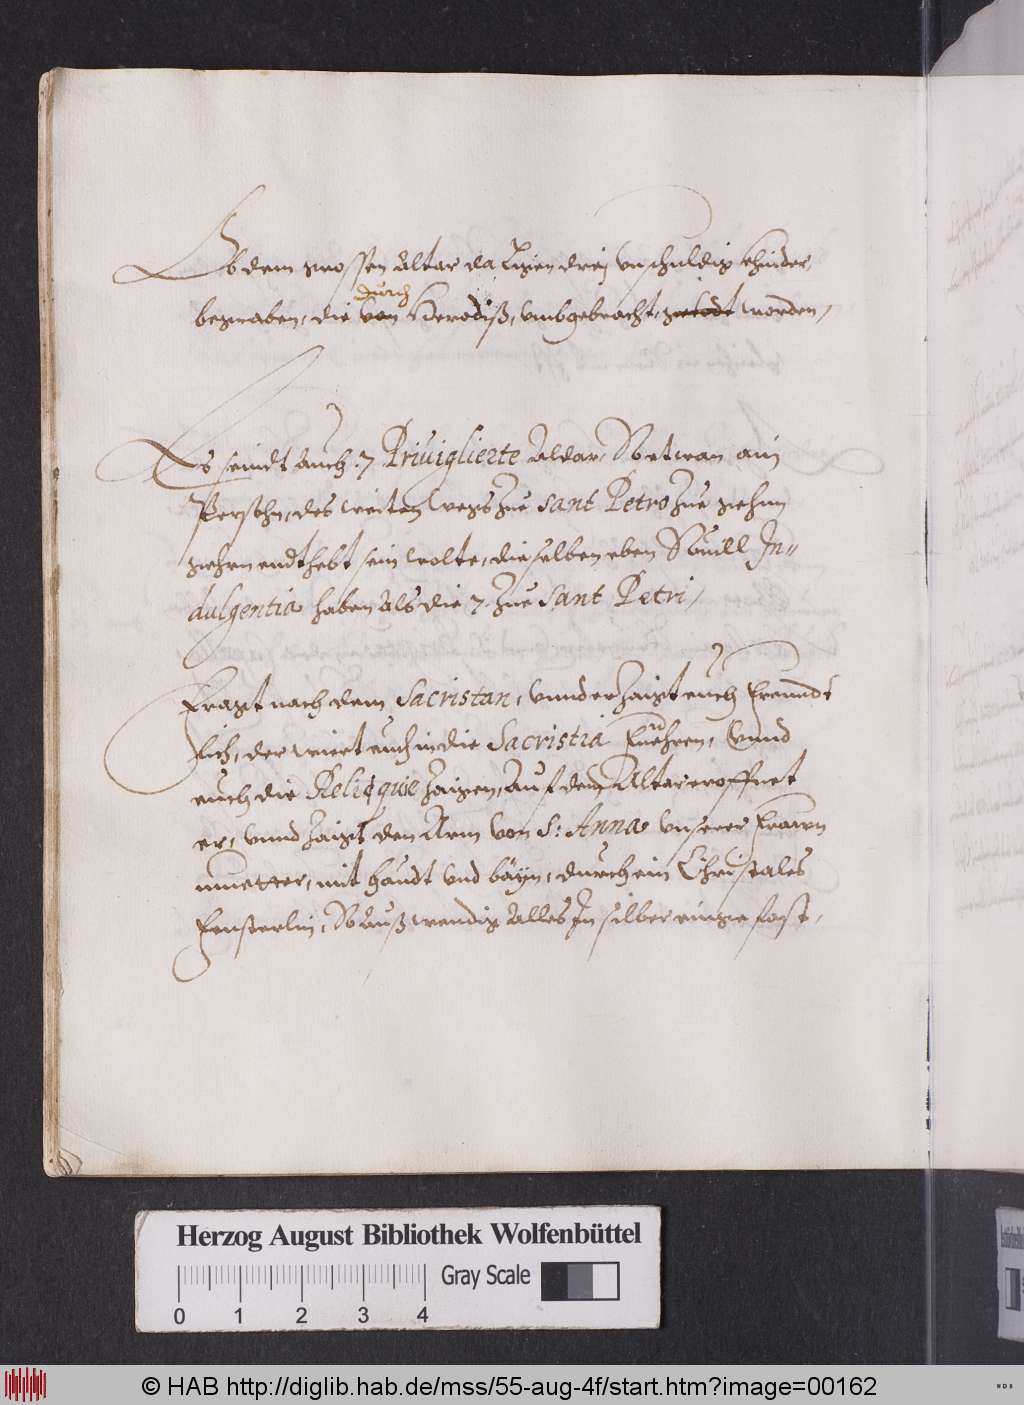 Ob dem grossen Altar da ligen dreÿ vnschuldig Khinder
begraben, die von durch Herodiß, vmbgebracht, getodt worden,
Es seindt auch .7 Priuiglierte Aldar, So etwan ain
Persohn, des weiten wegs Zue sant Petro Zue gehen
gehen endthebt sein wolte, dieselben eben Souill In=
dulgentia haben als die 7. Zue Sant Petri,
Fragt nach dem Sacristan, vnnd er Zaigt euch freundt
lich, der wiert euch in die Sacristia fuehren, Vnnd
euch die Reliquie Zaigen, Auf dem Altar eroffnet
er, vnnd Zaigt den Arm von S: Anna vnserer frawn
muetter, mit haudt vnd bäÿn, durch ein Christales
fensterlin, So außwendig alles In silber eingefast,
Herzog August Bibliothek Wolfenbüttel
Gray Scale
0 1 2 3 4
© HAB http://diglib.hab.de/mss/55-aug-4f/start.htm?image=00162